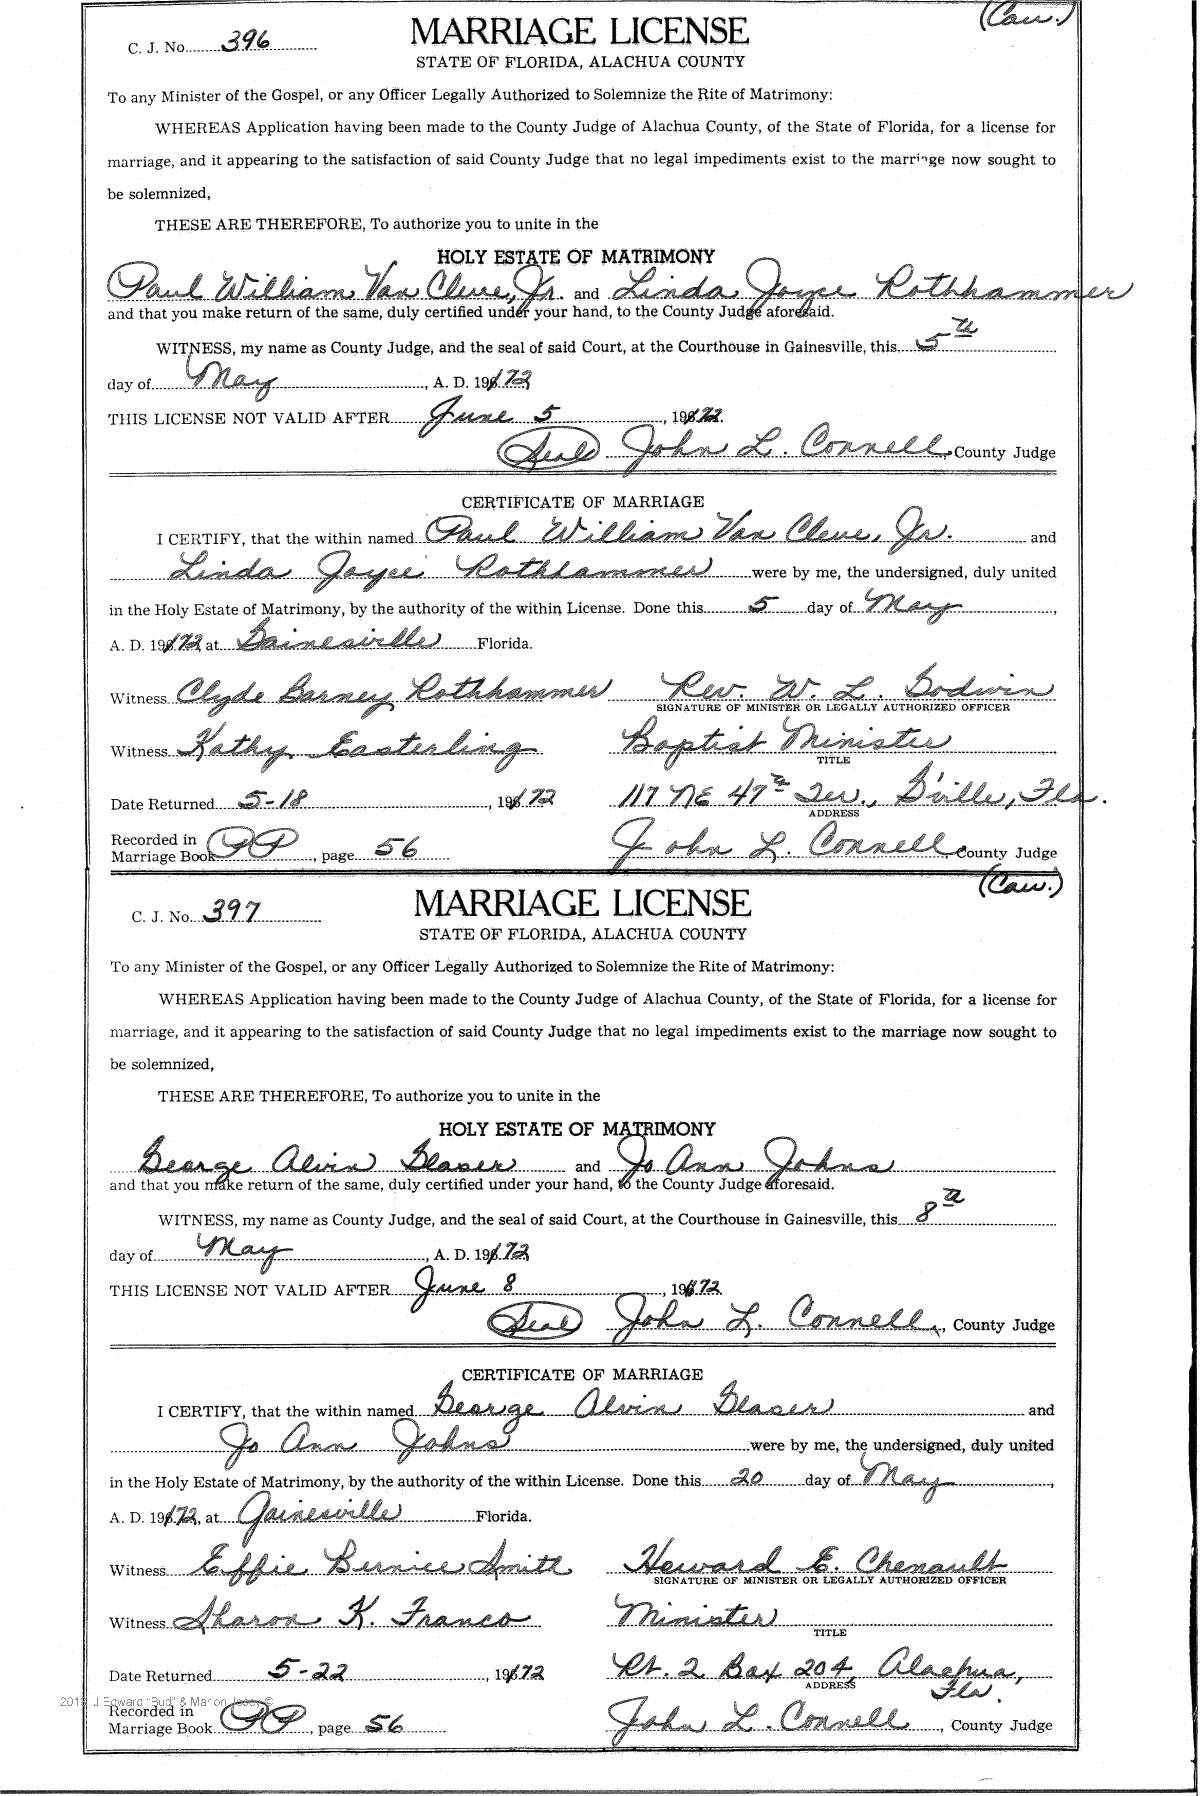 (Cau.)
C. J. No. 396
MARRIAGE LICENSE
STATE OF FLORIDA, ALACHUA COUNTY
To any Minister of the Gospel, or any Officer Legally Authorized to Solemnize the Rite of Matrimony:
WHEREAS Application having been made to the County Judge of Alachua County, of the State of Florida, for a license for
marriage, and it appearing to the satisfaction of said County Judge that no legal impediments exist to the marriage now sought to
be solemnized,
THESE ARE THEREFORE, To authorize you to unite in the
HOLY ESTATE OF MATRIMONY
Paul William Van Cleve, Jr. and Linda Joyce Rothhammer
and that you make return of the same, duly certified under your hand, to the County Judge aforesaid.
WITNESS, my name as County Judge, and the seal of said Court, at the Courthouse in Gainesville, this 5th
day of May, A. D. 1972
THIS LICENSE NOT VALID AFTER June 5, 1972.
(Seal) John L. Connell, County Judge
CERTIFICATE OF MARRIAGE
I CERTIFY, that the within named Paul William Van Cleve, Jr. and
Linda Joyce Rothhammer were by me, the undersigned, duly united
in the Holy Estate of Matrimony, by the authority of the within License. Done this 5 day of May,
A. D. 1972 at Gainesville Florida.
Witness Clyde Barney Rothhammer Rev. W. L. Godwin
SIGNATURE OF MINISTER OR LEGALLY AUTHORIZED OFFICER
Witness Kathy Easterling Baptist Minister
TITLE
Date Returned 5-18, 1972 117 NE 47th Ter., G'ville, Fla.
ADDRESS
Recorded in
Marriage Book PP, page 56 John L. Connell, County Judge
(Cau.)
C. J. No. 397
MARRIAGE LICENSE
STATE OF FLORIDA, ALACHUA COUNTY
To any Minister of the Gospel, or any Officer Legally Authorized to Solemnize the Rite of Matrimony:
WHEREAS Application having been made to the County Judge of Alachua County, of the State of Florida, for a license for
marriage, and it appearing to the satisfaction of said County Judge that no legal impediments exist to the marriage now sought to
be solemnized,
THESE ARE THEREFORE, To authorize you to unite in the
HOLY ESTATE OF MATRIMONY
George Alvin Glaser and Jo Ann Johns
and that you make return of the same, duly certified under your hand, to the County Judge aforesaid.
WITNESS, my name as County Judge, and the seal of said Court, at the Courthouse in Gainesville, this 8th
day of May, A. D. 1972
THIS LICENSE NOT VALID AFTER June 8, 1972
(Seal) John L. Connell, County Judge
CERTIFICATE OF MARRIAGE
I CERTIFY, that the within named George Alvin Glaser and
Jo Ann Johns were by me, the undersigned, duly united
in the Holy Estate of Matrimony, by the authority of the within License. Done this 20 day of May,
A. D. 1972, at Gainesville Florida.
Witness Effie Bernice Smith Heward E. Chenault
SIGNATURE OF MINISTER OR LEGALLY AUTHORIZED OFFICER
Witness Sharon K. Franco Minister
TITLE
Date Returned 5-22, 1972 Rt. 2 Box 204, Alachua,
ADDRESS Fla.
J Edward "Bud" & Marion
Recorded in
Marriage Book PP, page 56 John L. Connell, County Judge